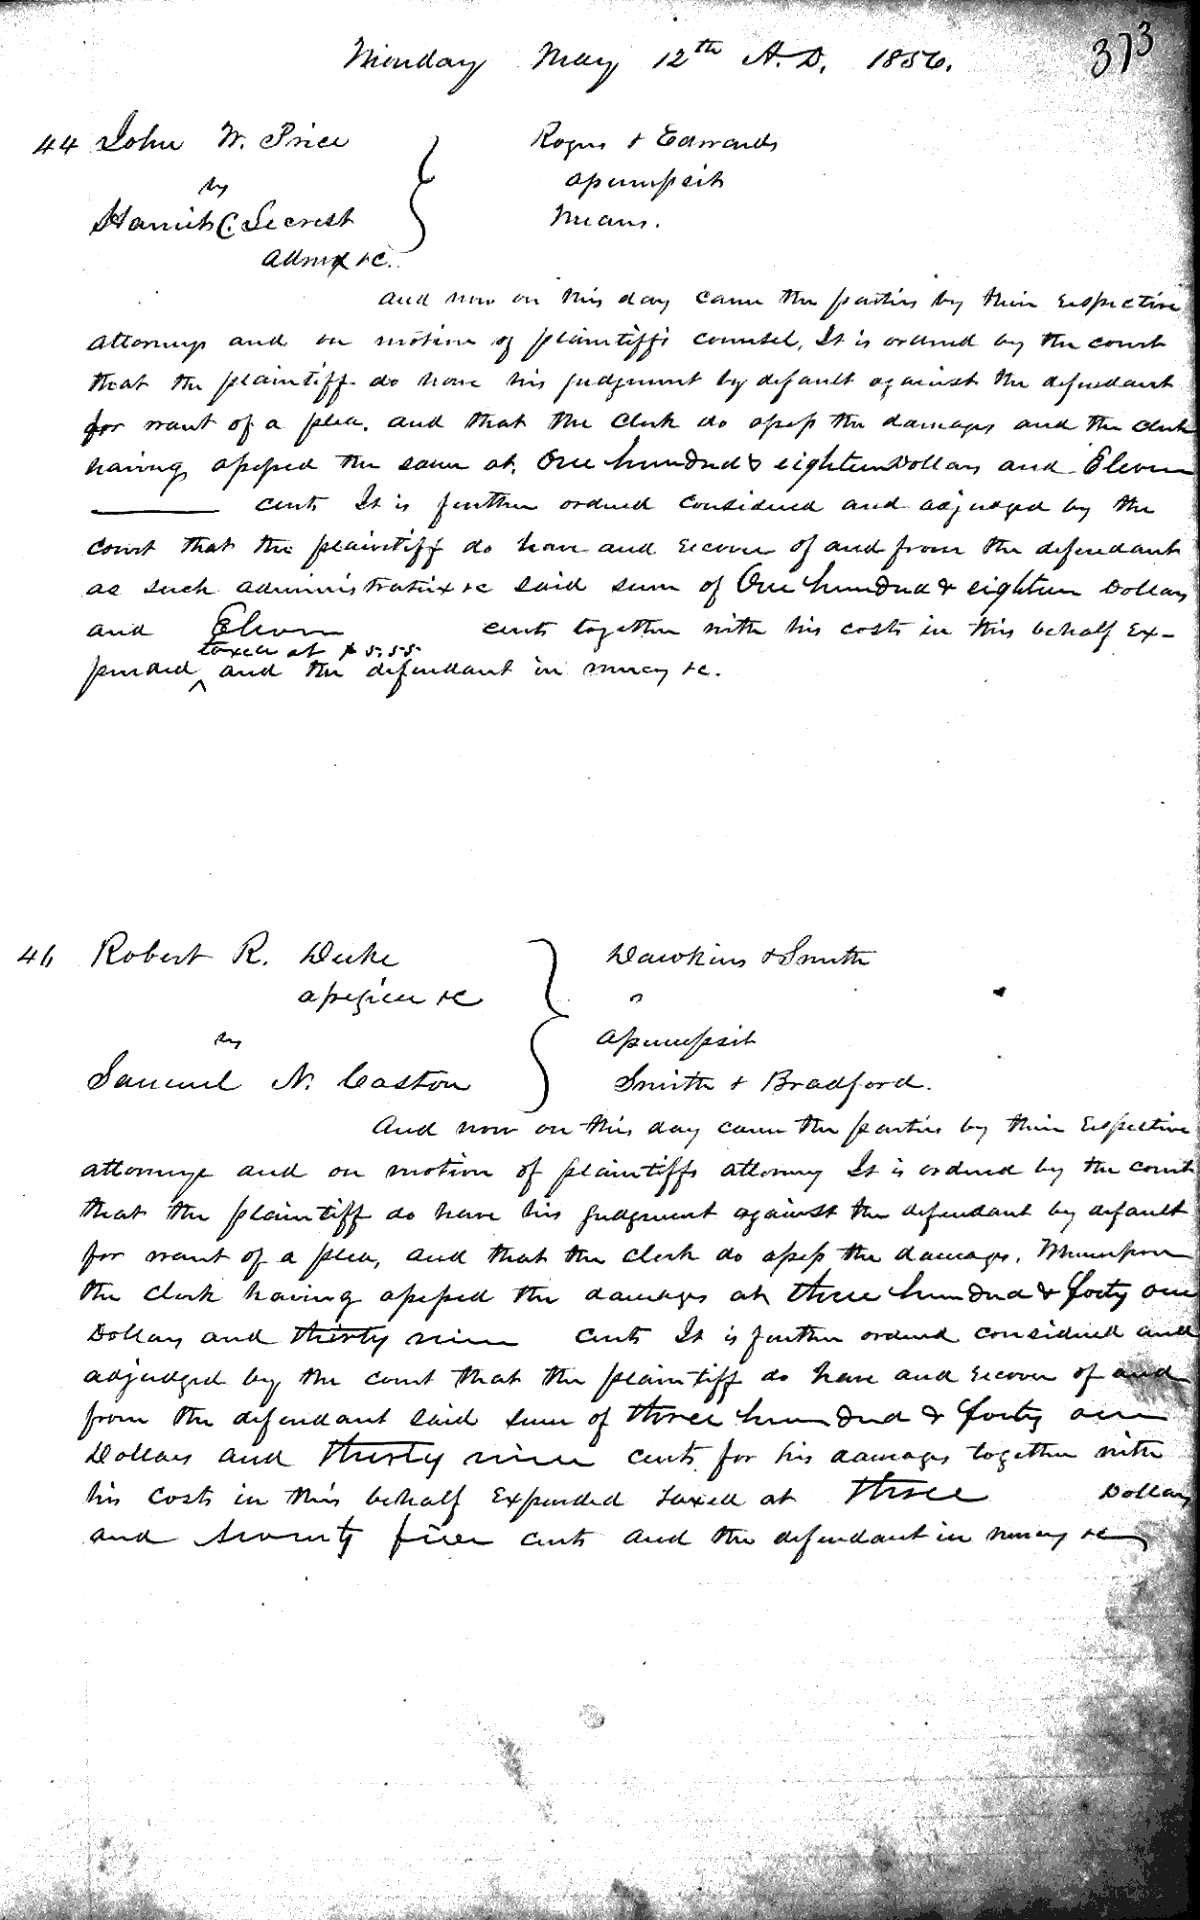 373
Monday May 12th A.D. 1856.
44 John W. Price Rogers & Edwards
vs assumpsit
Harriet C. Secrest Means.
Admx &c.
And now on this day came the parties by their respective
attorneys and on motion of plaintiffs counsel, It is ordered by the court
that the plaintiff do have his judgment by default against the defendant
for want of a plea. and that the clerk do assess the damages and the clerk
having assessed the same at, One hundred & eighteen Dollars and Eleven
cents It is further ordered considered and adjudged by the
court that the plaintiff do have and recover of and from the defendant
as such administratrix &c said sum of One hundred & eighteen Dollars
and Eleven cents together with his costs in this behalf Ex-
taxed at $5.55
pended ^ and the defendant in mercy &c.
46 Robert R. Duke Dawkins & Smith
assignee &c "
vs assumpsit
Samuel N. Caston Smith & Bradford.
And now on this day came the parties by their respective
attorneys and on motion of plaintiffs attorney It is ordered by the court
that the plaintiff do have his judgment against the defendant by default
for want of a plea, and that the clerk do assess the damages. Whereupon
the clerk having assessed the damages at three hundred & forty one
Dollars and thirty nine cents It is further ordered considered and
adjudged by the court that the plaintiff do have and recover of and
from the defendant said sum of three hundred & forty one
Dollars and thirty nine cents for his damages together with
his costs in this behalf Expended taxed at three Dollars
and seventy five cents and the defendant in mercy &c